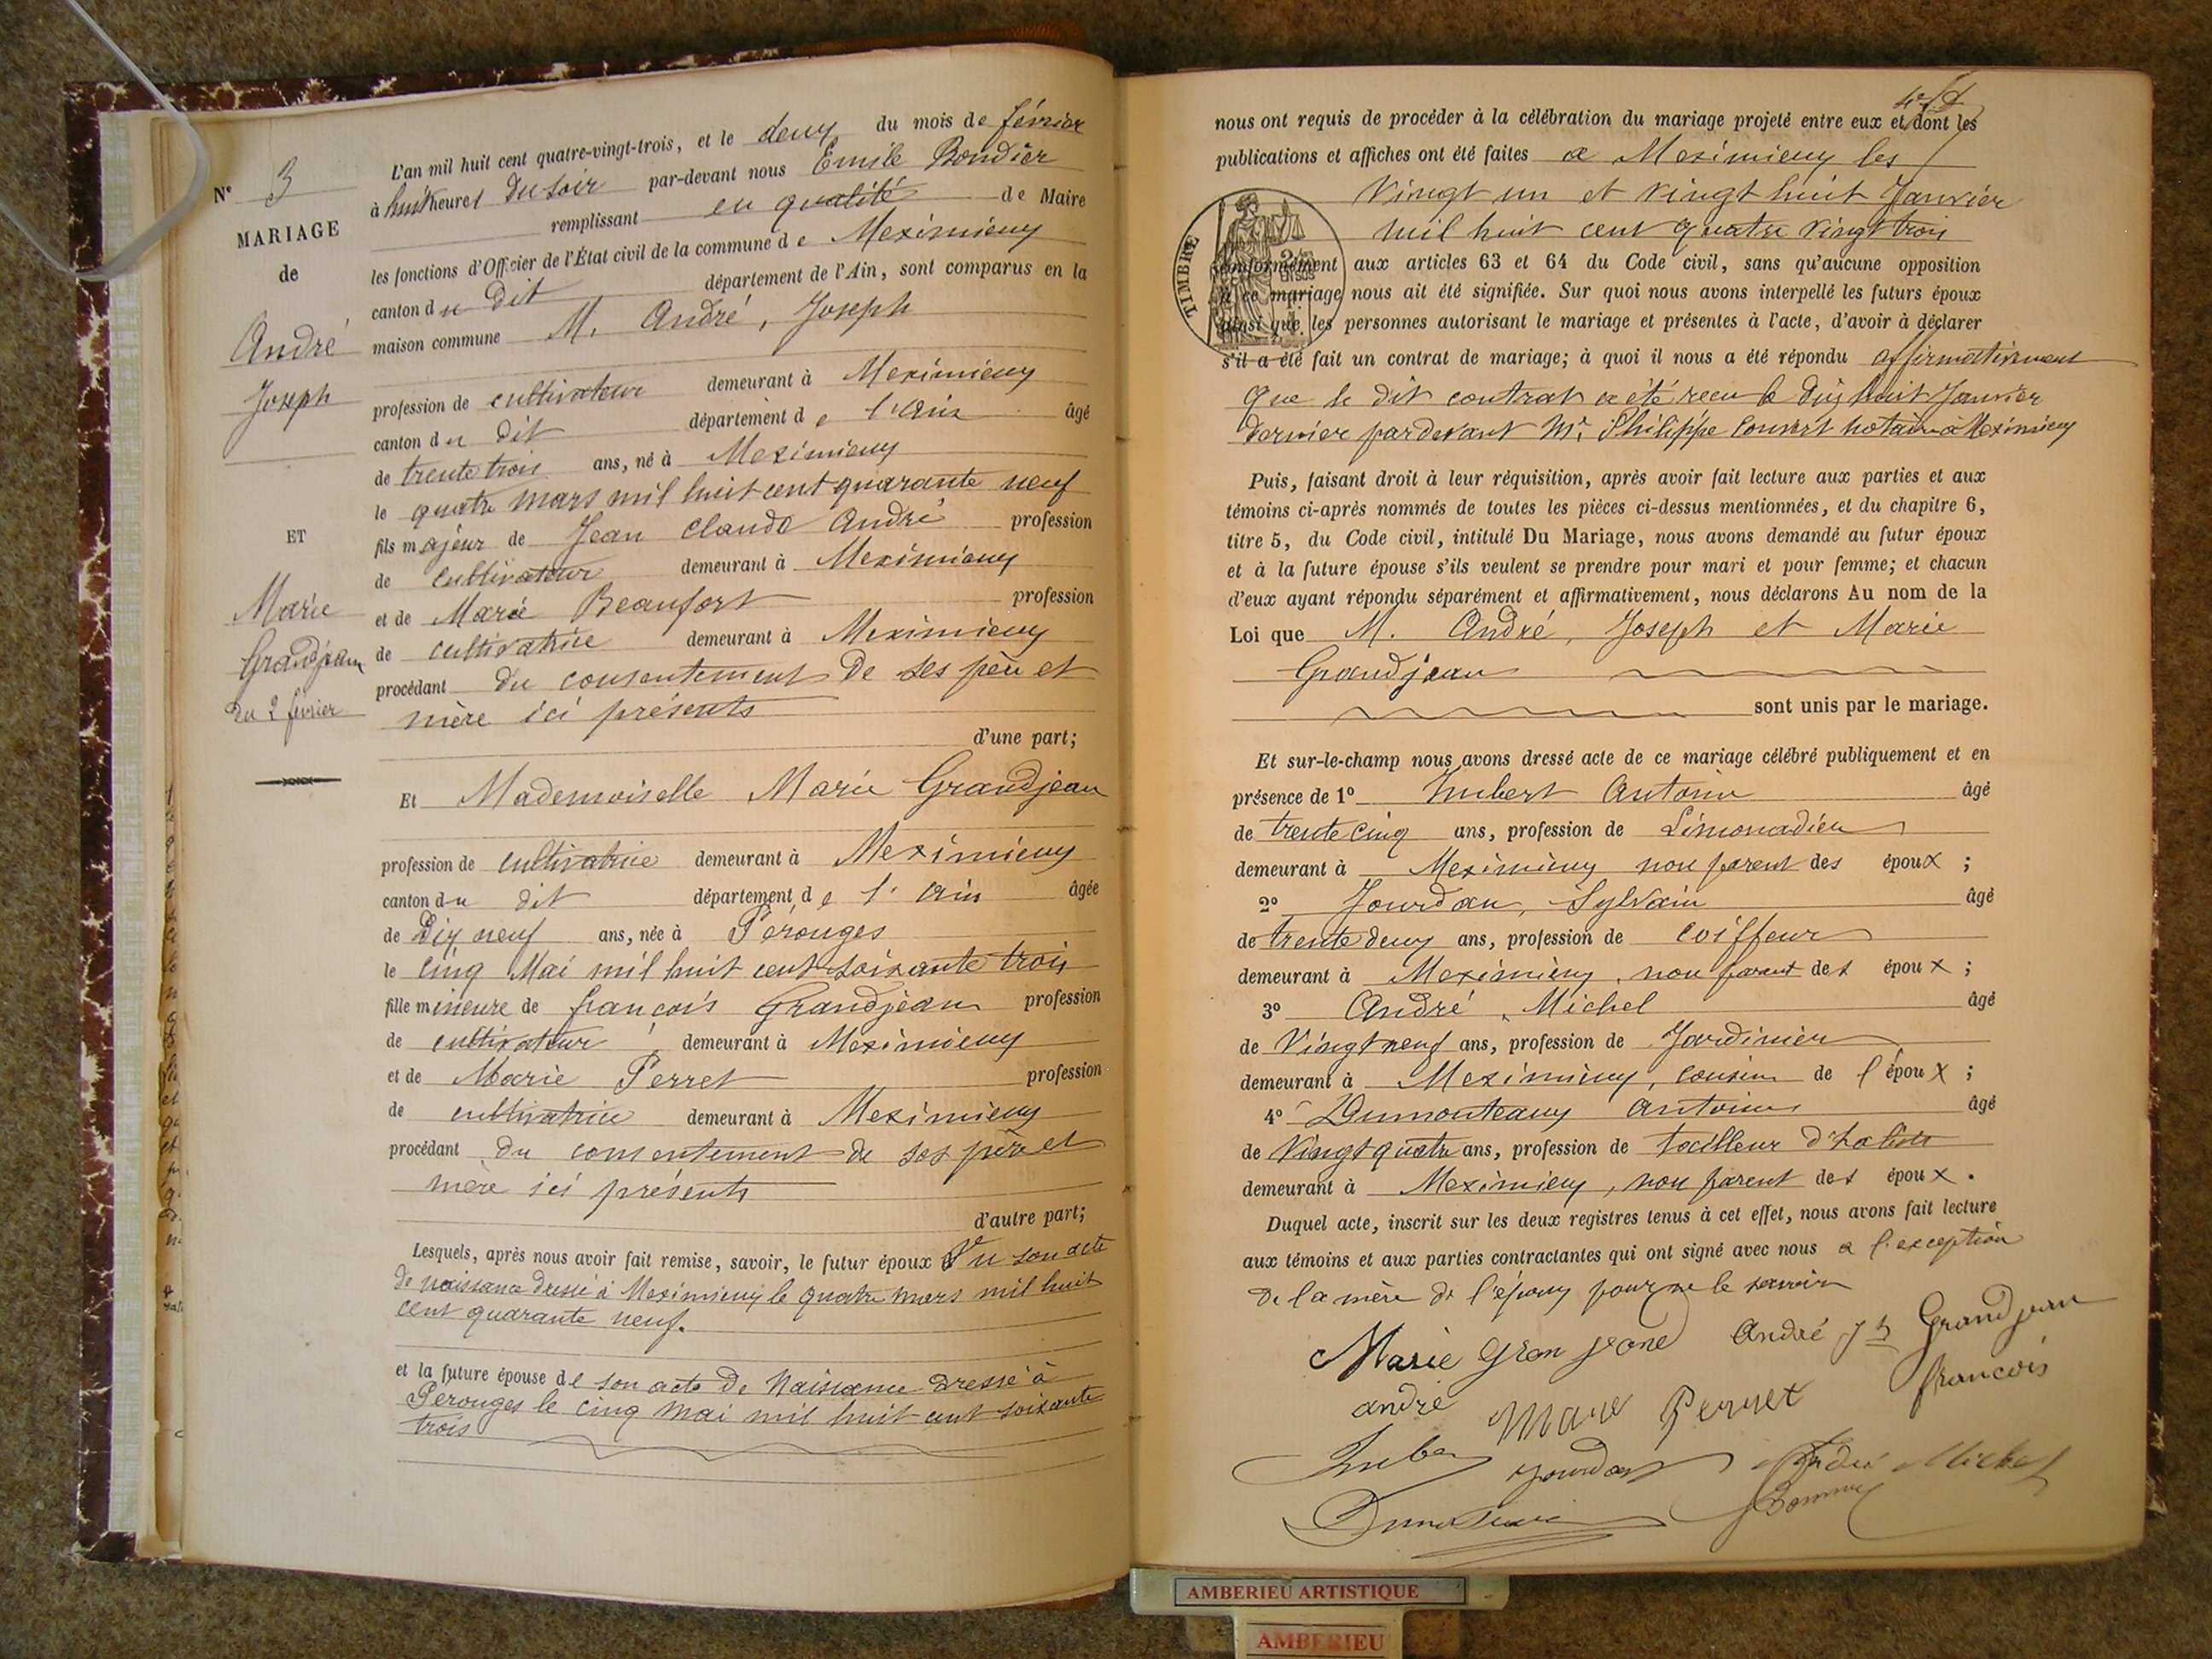 N° 3
MARIAGE
de
André
Joseph
ET
Marie
Grandjean
du 2 février
L'an mil huit cent quatre-vingt-trois, et le deux du mois de février
à huit heures du soir par-devant nous Emile Bondier
remplissant en qualité de Maire
les fonctions d'Officier de l'État civil de la commune de Meximieux
canton du dit département de l'Ain, sont comparus en la
maison commune M. André, Joseph
profession de cultivateur demeurant à Meximieux
canton du dit département de l'Ain âgé
de trente trois ans, né à Meximieux
le quatre mars mil huit cent quarante neuf
fils majeur de Jean Claude André profession
de cultivateur demeurant à Meximieux
et de Marie Beaufort profession
de cultivatrice demeurant à Meximieux
procédant du consentement de ses père et
mère ici présents
d'une part;
Et Mademoiselle Marie Grandjean
profession de cultivatrice demeurant à Meximieux
canton du dit département de l'Ain âgée
de Dix neuf ans, née à Pérouges
le cinq Mai mil huit cent soixante trois
fille mineure de françois Grandjean profession
de cultivateur demeurant à Meximieux
et de Marie Perret profession
de cultivatrice demeurant à Meximieux
procédant du consentement de ses père et
mère ici présents
d'autre part;
Lesquels, après nous avoir fait remise, savoir, le futur époux Vu son acte
de naissance dressé à Meximieux le quatre mars mil huit
cent quarante neuf.
et la future épouse de son acte de Naissance dressé à
Perouges le cinq mai mil huit cent soixante
trois
nous ont requis de procéder à la célébration du mariage projeté entre eux et dont les
publications et affiches ont été faites a Meximieux les
Vingt un et vingt huit Janvier
mil huit cent quatre vingt trois
TIMBRE
conformément aux articles 63 et 64 du Code civil, sans qu'aucune opposition
à ce mariage nous ait été signifiée. Sur quoi nous avons interpellé les futurs époux
ainsi que les personnes autorisant le mariage et présentes à l'acte, d'avoir à déclarer
s'il a été fait un contrat de mariage; à quoi il nous a été répondu affirmativement
que le dit contrat a été recu le dix huit Janvier
dernier pardevant Mr. Philippe Convert notaire à Meximieux
Puis, faisant droit à leur réquisition, après avoir fait lecture aux parties et aux
témoins ci-après nommés de toutes les pièces ci-dessus mentionnées, et du chapitre 6,
titre 5, du Code civil, intitulé Du Mariage, nous avons demandé au futur époux
et à la future épouse s'ils veulent se prendre pour mari et pour femme; et chacun
d'eux ayant répondu séparément et affirmativement, nous déclarons Au nom de la
Loi que M. André, Joseph et Marie
Grandjean
sont unis par le mariage.
Et sur-le-champ nous avons dressé acte de ce mariage célébré publiquement et en
présence de 1° Imbert Antoine âgé
de trente cinq ans, profession de Limonadier
demeurant à Meximieux non parent des époux ;
2° Jourdan, Sylvain âgé
de trente deux ans, profession de coiffeur
demeurant à Meximieux, non parent des époux ;
3° André, Michel âgé
de Vingt neuf ans, profession de Jardinier
demeurant à Meximieux, cousin de l'époux ;
4° Dumonteaux Antoine âgé
de Vingt quatre ans, profession de tailleur d'habits
demeurant à Meximieux, non parent des époux .
Duquel acte, inscrit sur les deux registres tenus à cet effet, nous avons fait lecture
aux témoins et aux parties contractantes qui ont signé avec nous a l'exception
de la mère de l'époux pour ne le savoir
Marie Gran jeane André Jh Grandjean
andré Marie Perret francois
Imber Jourdan André Michel
AMBERIEU ARTISTIQUE
AMBERIEU